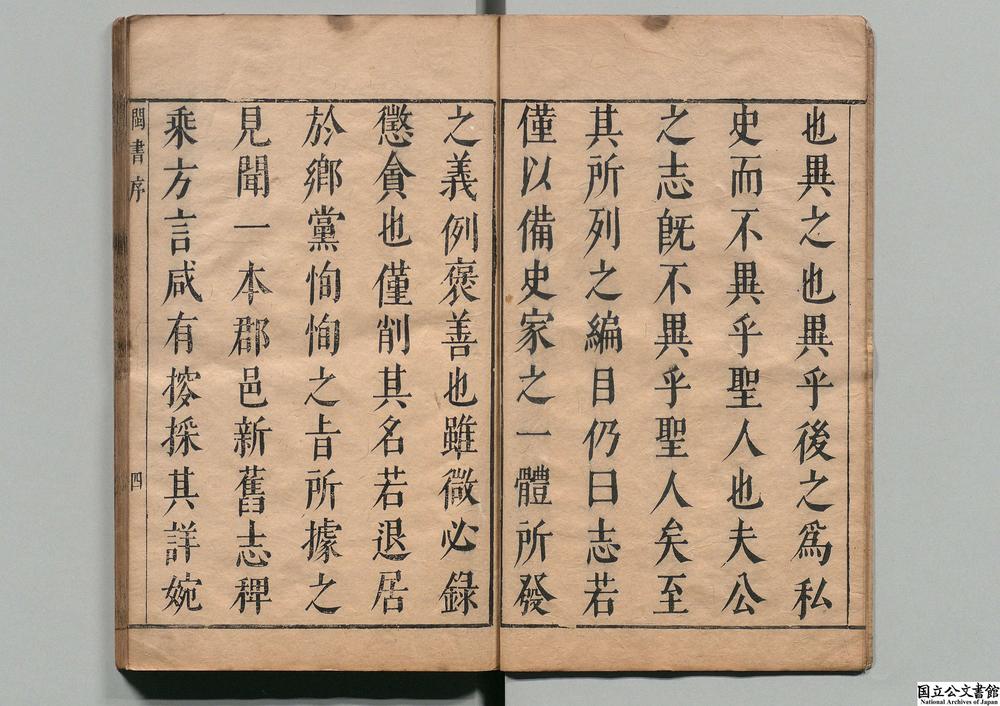 也異之也異乎後之為私
史而不異乎聖人也夫公
之志既不異乎聖人矣至
其所列之編目仍曰志若
僅以備史家之一體所發
之義例褒善也雖微必錄
懲貪也僅削其名若退居
於鄉黨恂恂之旨所據之
見聞一本郡邑新舊志稗
乘方言咸有搜採其詳婉
閩書序
四
国立公文書館
National Archives of Japan